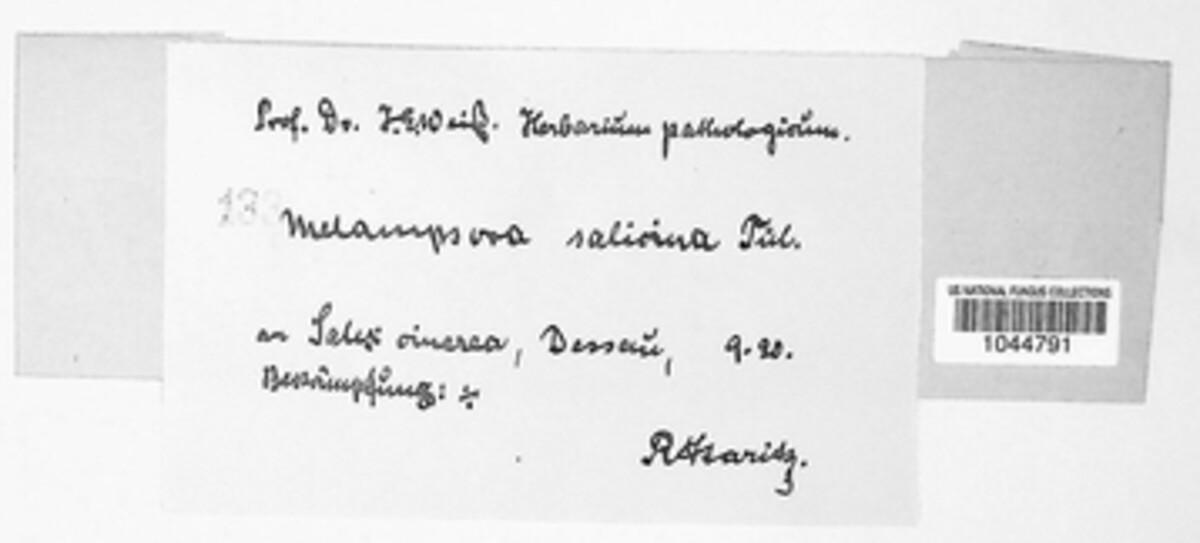 Prof. Dr. J.E. Weiß. Herbarium pathologicum.
Melampsora salicina Tul.
an Salix cinerea, Dessau, 9.20.
Bekämpfung: ÷
R. Staritz.
US NATIONAL FUNGUS COLLECTIONS
1044791